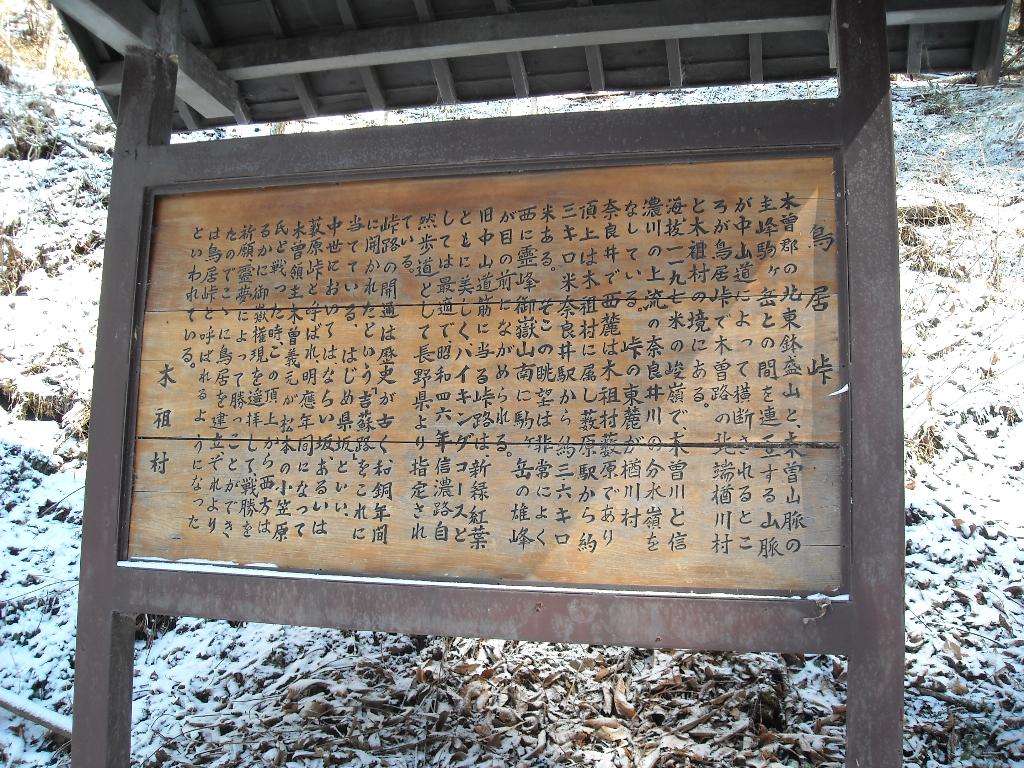 鳥居峠
木曽郡の北東鉢盛山と、木曽山脈の
主峰駒ヶ岳との間を連亙する山脈
が中山道によって横断されるとこ
ろが鳥居峠で木曽路の北端楢川村
と木祖村の境にある。
海抜一一九七米の峻嶺で木曽川と信
濃川の上流の奈良井川の分水嶺を
なしている。峠の東麓が楢川村
奈良井で西麓は木祖村薮原であり
頂上は木祖村に属し薮原駅から約
三キロ米奈良井駅から約三六キロ
米ある。そこの眺望は非常によく
西に霊峰御嶽山南に駒ヶ岳の雄峰
が目の前にながめられる。
旧中山道筋に当る峠路は、新緑紅葉
とともに美しくハイキングコースと
しては最適で昭和四六年信濃路自
然歩道として長野県より指定され
ている。
峠路の開通は歴史が古く和銅年間
に開かれたという吉蘇路をこれに
当てている、はじめ県坂といい、
中世においてはならい坂あるいは
薮原峠と呼ばれ明應年間になって
木曽領主木曽義元が松本の小笠原
氏と戦った時この頂上から西方は
るかに御嶽権現を遙拝して戦勝を
祈願し霊夢によって勝つことができ
たのでこゝに鳥居を建てそれより
は鳥居峠と呼ばれるようになった
といわれている。
木祖村